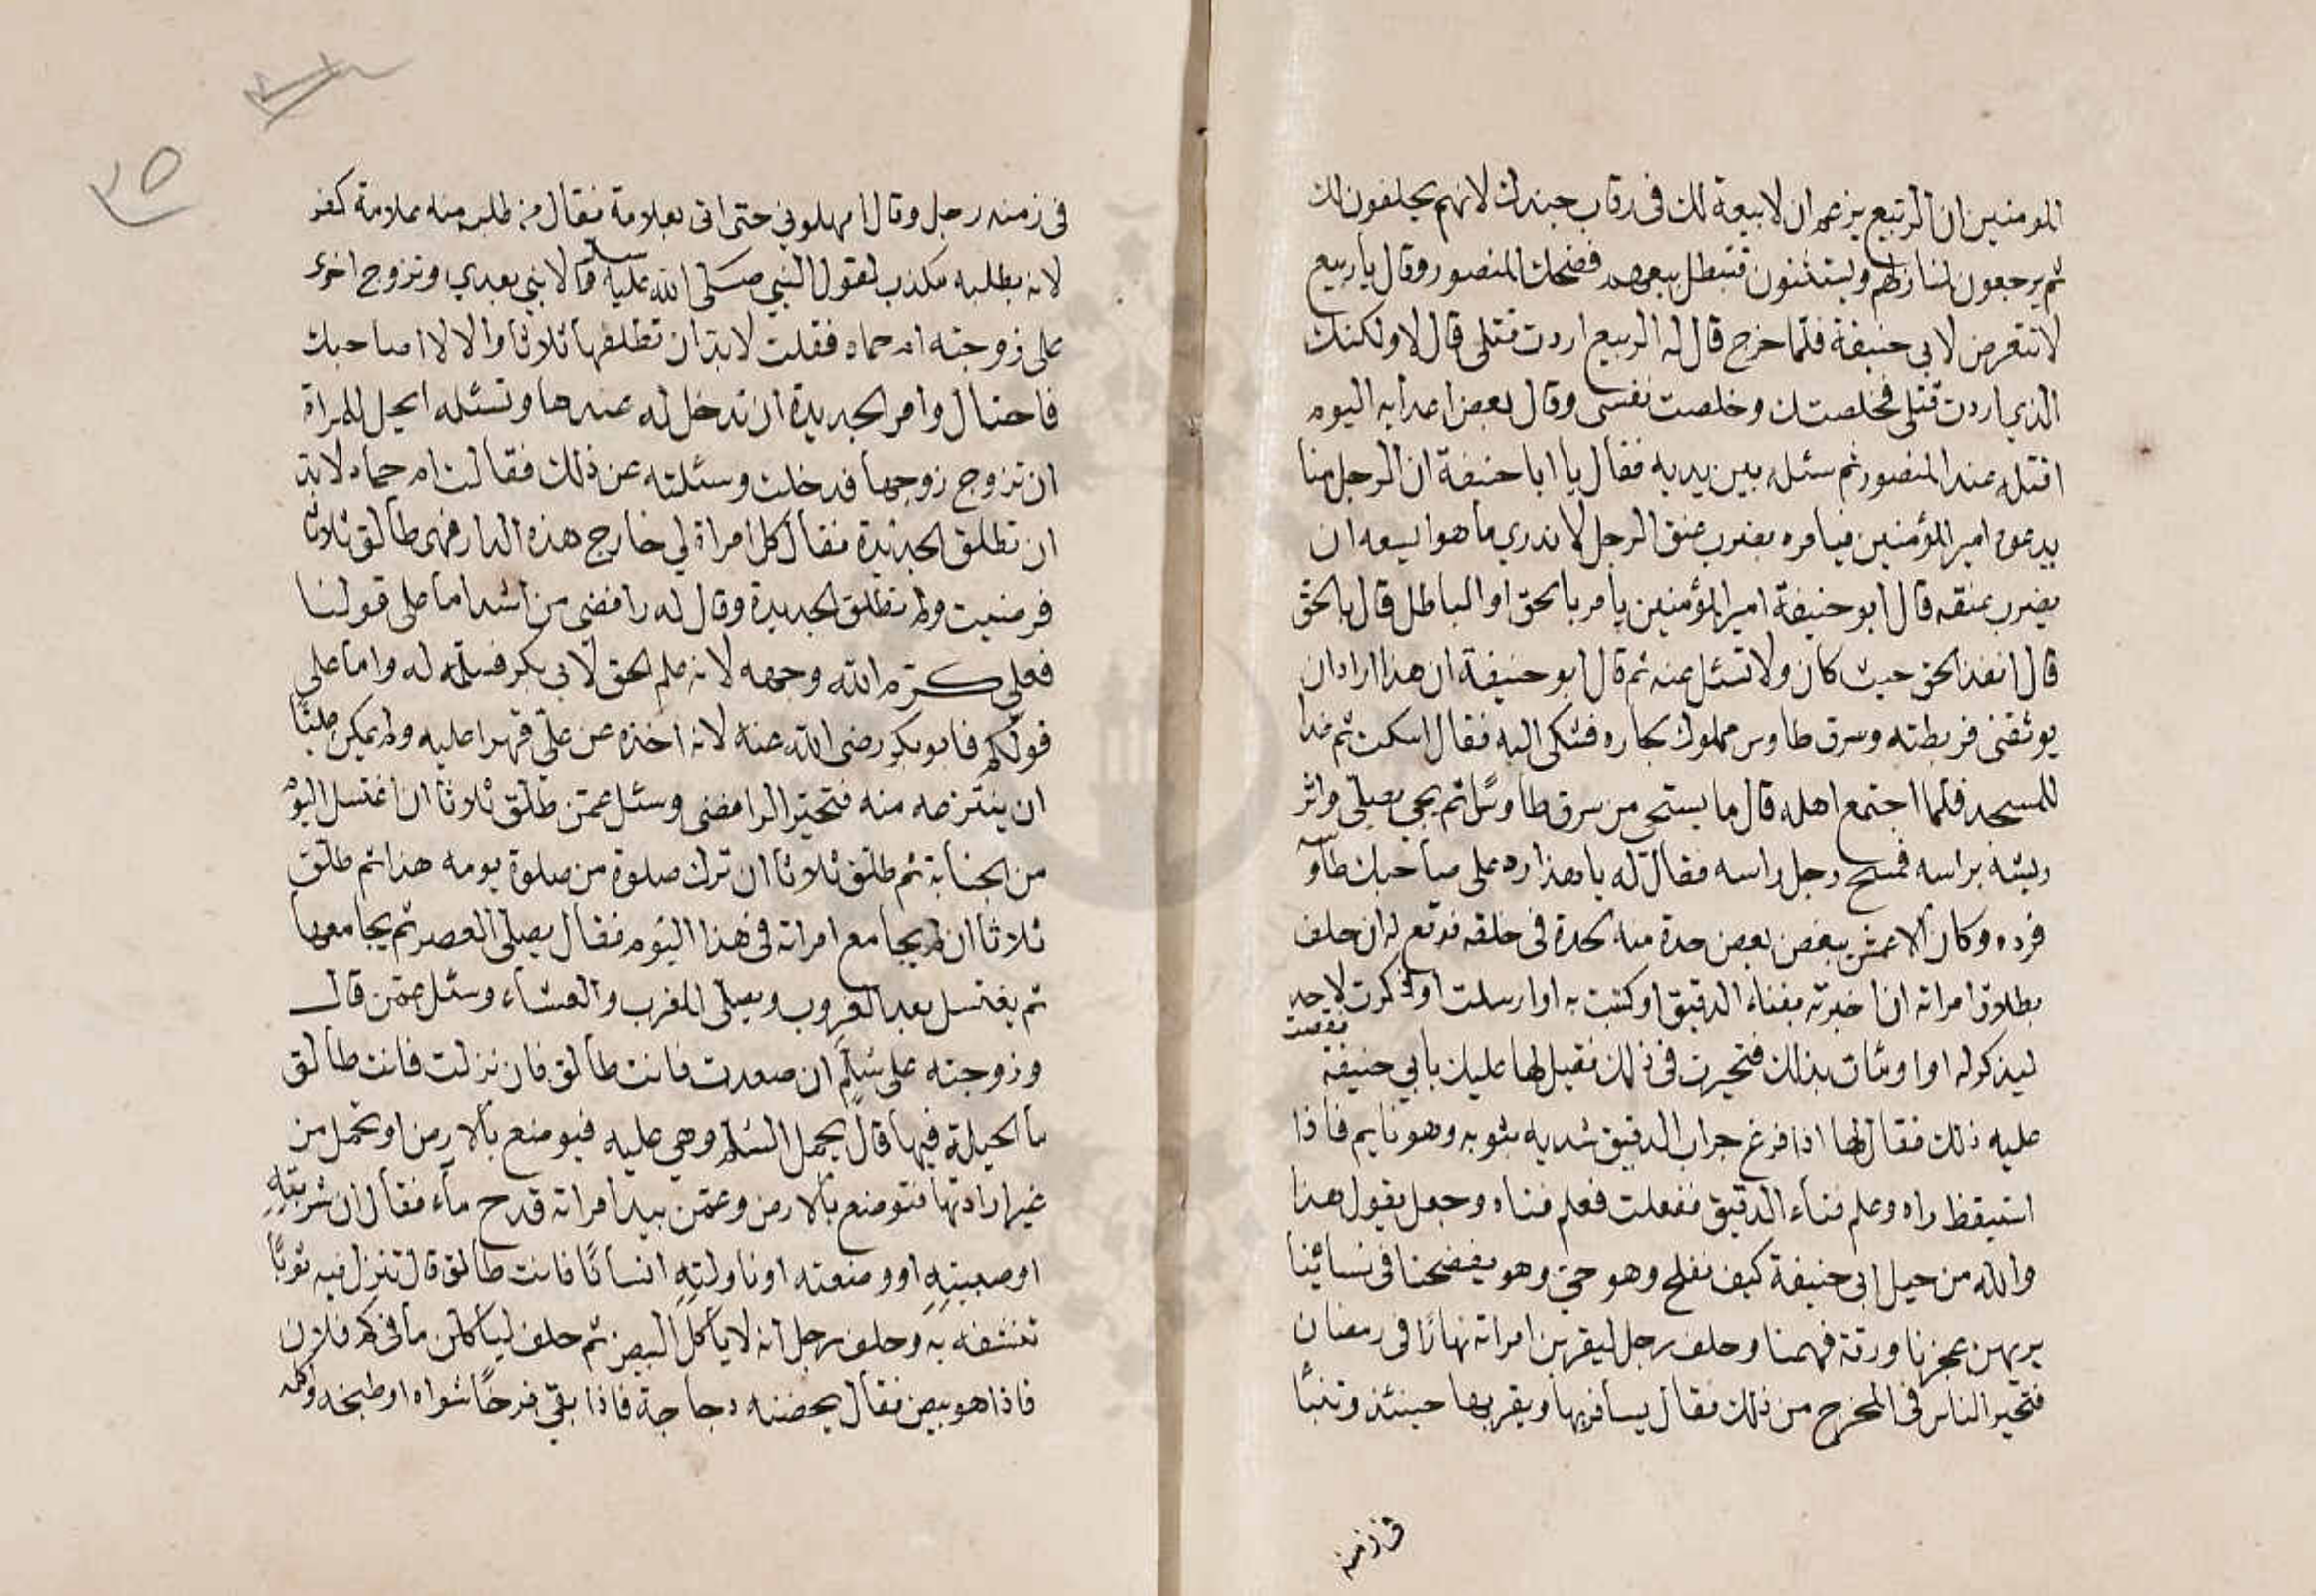 المومنين ان الربيع يزعم ان لا بيعة لك فى رقاب جندك لانهم يحلفون لك
ثم يرجعون لمنازلهم ويستثنون فتبطل بيعتهم فضحك المنصور وقال يا ربيع
لا تتعرض لابي حنيفة فلما خرج قال له الربيع اردت قتلى قال لا ولكنك
الذي اردت قتلى فخلصتك وخلصت نفسى وقال بعض اعدايه اليوم
اقتله عند المنصور ثم سئله بين يديه فقال يا ابا حنيفة ان الرجل منا
يدعوه امير المؤمنين فيامره بضرب عنق الرجل لا ندري ما هو ايسعه ان
يضرب عنقه قال ابو حنيفة امير المؤمنين يامر بالحق او الباطل قال بالحق
قال انفذ الحق حيث كان ولا تسئل عنه ثم قال ابو حنيفة ان هذا اراد ان
يوثقنى فربطته وسرق طاوس مملوك لجاره فشكى اليه فقال اسكت ثم غدا
للمسجد فلما اجتمع اهله قال ما يستحى من سرق طاوسًا ثم يجى يصلى واثر
ريشه براسه فمسح رجل راسه فقال له يا هذا رد على صاحبك طاوسه
فرده وكان الاعمش يبغض بعض حدة منه لحدة فى خلقه فوقع له ان حلف
بطلاق امراته ان اخبرته بفناء الدقيق او كتبت به او ارسلت او ذكرت لاحد
ليذكر له او اومئات بذلك فتحيرت فى ذلك فقيل لها عليك بابي حنيفة فقصت
عليه ذلك فقال لها اذا فرغ جراب الدقيق شديه بثوبه وهو نايم فاذا
استيقظ راه وعلم فناء الدقيق ففعلت فعلم فناه وجعل يقول هذا
والله من حيل ابى حنيفة كيف نفلح وهو حيّ وهو يفضحنا فى نسائينا
يريهن عجزنا ورقة فهمنا وحلف رجل ليقربن امراته نهارًا فى رمضان
فتحير الناس فى المخرج من ذلك فقال يسافر بها ويقربها حينئذ وتنبّا
فى زمنه
٢٥
فى زمنه رجل وقال امهلونى حتى اتى بعلامة فقال من طلب منه علامة كفر
لانه بطلبه مكذب لقول النبي صلى الله عليه وسلم لا نبي بعدي وتزوج اخرى
على زوجته ام حماد فقلت لابد ان تطلقها ثلاثا والا لا اصاحبك
فاحتال وامر الجديدة ان تدخل له عندها وتسئله ايحل للمراة
ان تزوج زوجها فدخلت وسئلته عن ذلك فقالت ام حماد لابد
ان تطلق الجديدة فقال كل امراة لي خارج هذه الدار فهى طالق ثلاثا
فرضيت ولم تطلق الجديدة وقال له رافضى من اشد اما على قولنا
فعلي كرم الله وجهه لانه علم الحق لابي بكر فسلمه له واما على
قولكم فابو بكر رضى الله عنه لانه اخذه عن علىّ قهرا عليه ولم يمكن عليًّا
ان ينتزعه منه فتحير الرافضى وسئل عمّن طلق ثلاثا ان اغتسل اليوم
من الجنابة ثم طلق ثلاثا ان ترك صلوة من صلوة يومه هذا ثم طلق
ثلاثا ان لم يجامع امراته فى هذا اليوم فقال يصلى العصر ثم يجامعها
ثم يغتسل بعد الغروب ويصلى المغرب والعشاء وسئل عمّن قال
وزوجته على سُلّم ان صعدت فانت طالق فان نزلت فانت طالق
ما الحيلة فيها قال يحمل السلم وهي عليه فيوضع بالارض او تحمل من
غير ارادتها فتوضع بالارض وعمّن بيد امراته قدح ماء فقال ان شربتِهِ
او صببتِهِ او وضعته او ناولتِهِ انسانًا فانت طالق قال تنزل فيه ثوبًا
تنشفه بِهِ وحلف رجل انه لا ياكل البيض ثم حلف لياكلن ما فى كم فلان
فاذا هو بيض فقال يحضنه دجاجة فاذا بقى فرخًا شواه او طبخه وكله